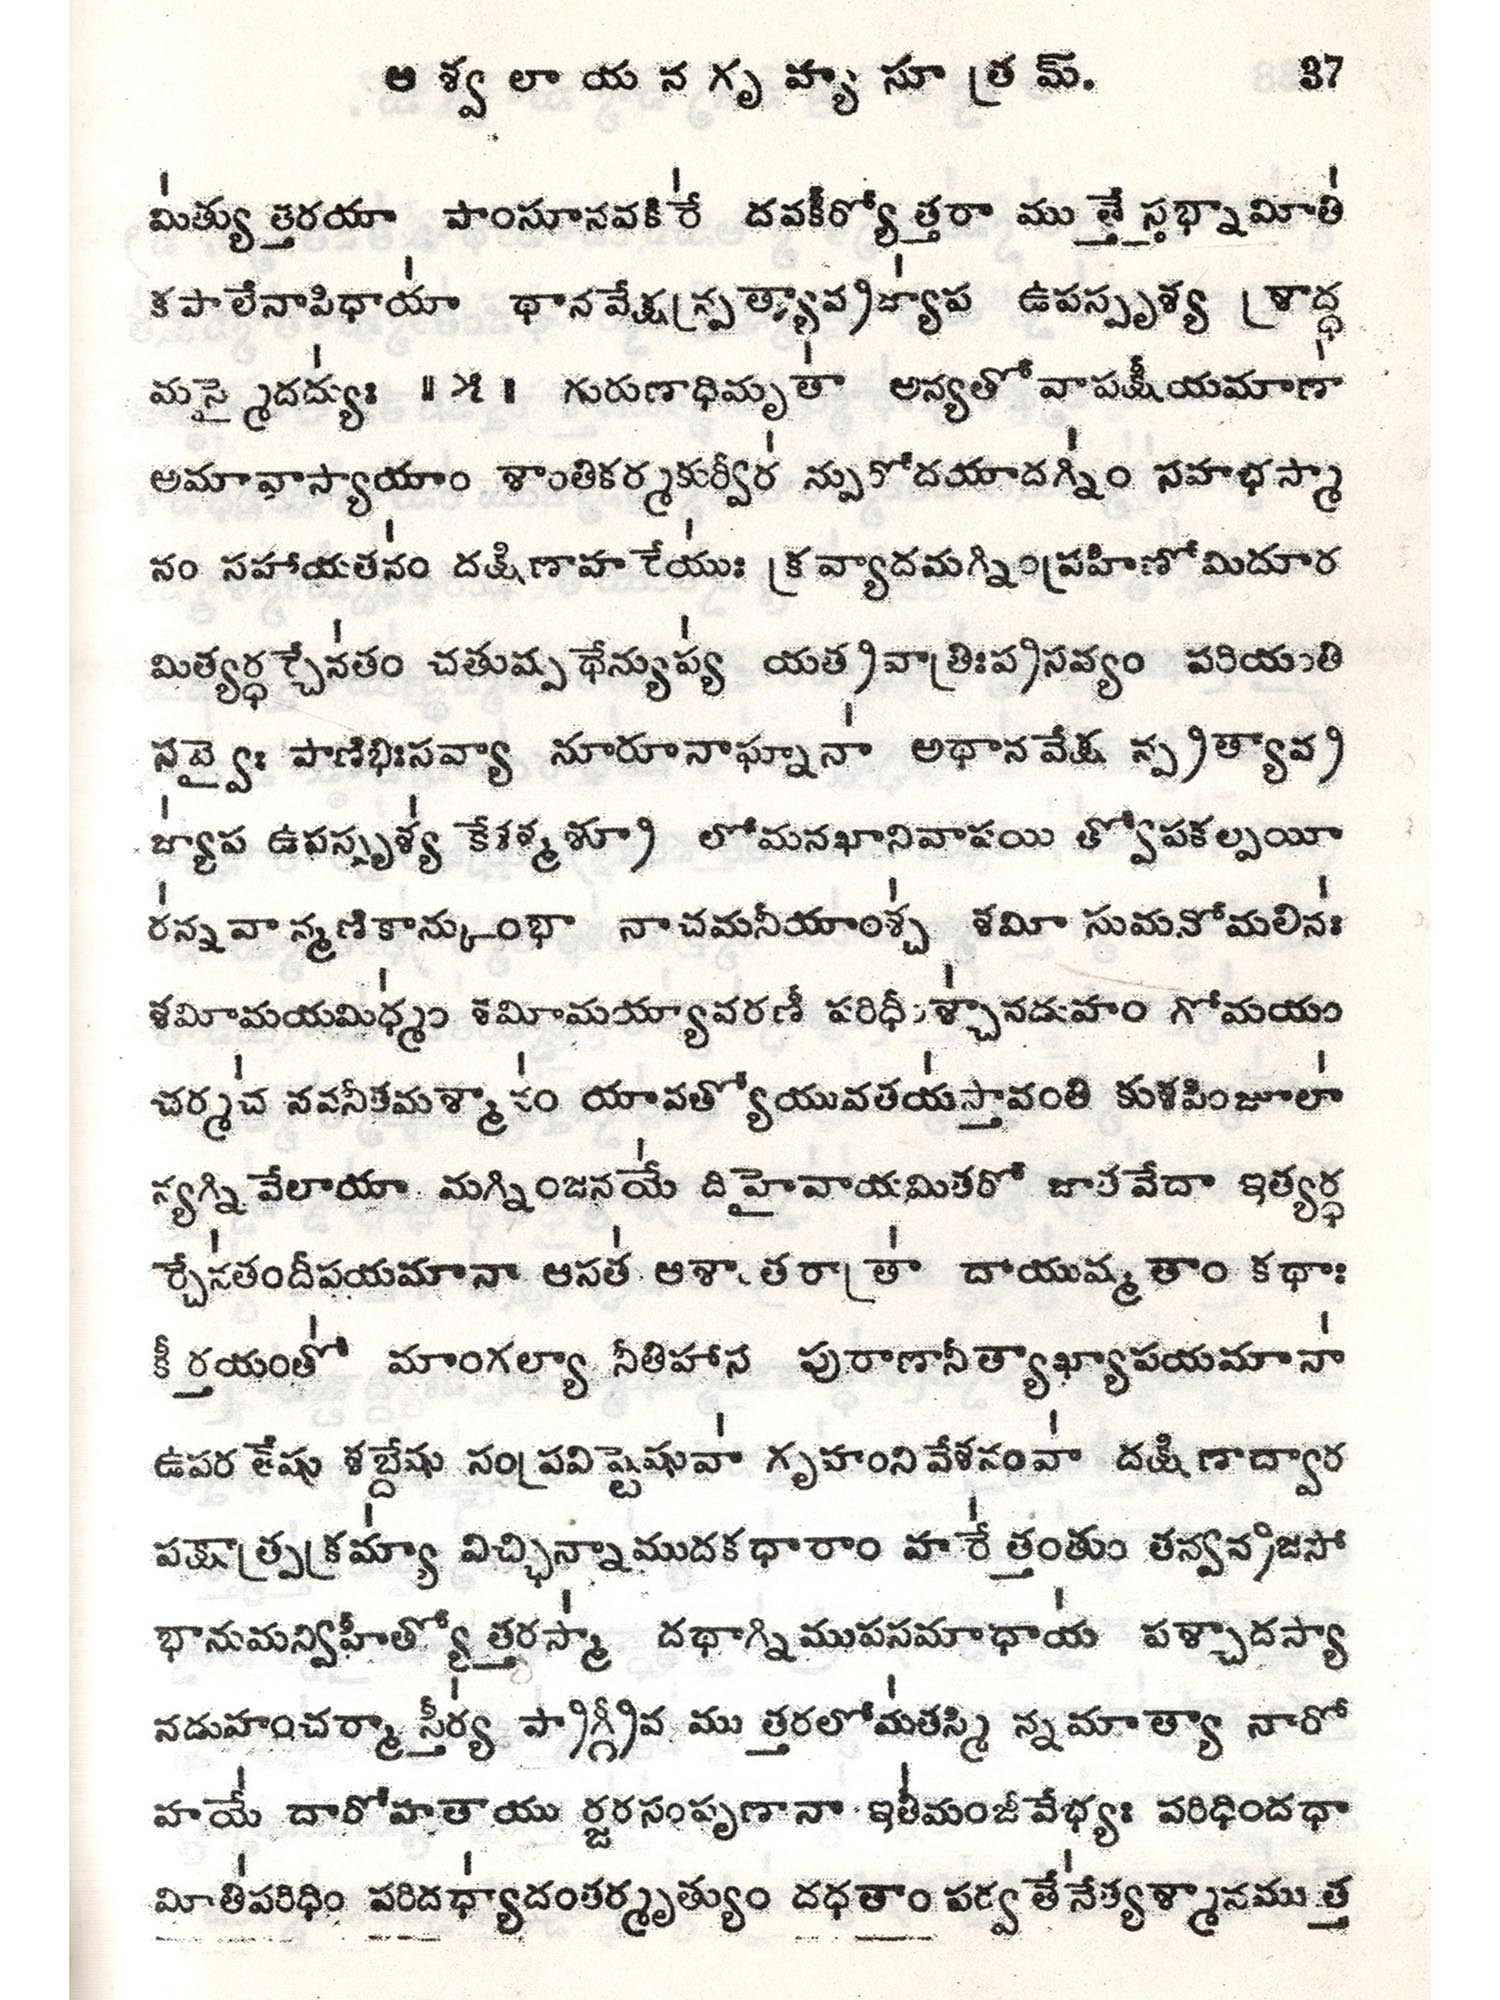 ఆశ్వలాయనగృహ్యసూత్రమ్. 37
మిత్యుత్తరయా పాంసూనవకిరే దవకీర్యోత్తరా ముత్తేస్తభ్నామీతి
కపాలేనాపిధాయా థానవేక్షన్ప్రత్యావ్రజ్యాప ఉపస్పృశ్య శ్రాద్ధ
మస్మైదద్యుః ॥ ౫ ॥ గురుణాధిమృతా అన్యతోవాపక్షీయమాణా
అమావాస్యాయాం శాంతికర్మకుర్వీర న్పురోదయాదగ్నిం సహభస్మా
నం సహాయతనం దక్షిణాహరేయుః క్రవ్యాదమగ్నింప్రహిణోమిదూర
మిత్యర్ధర్చేనతం చతుష్పథేన్యుప్య యత్రవాత్రిఃప్రసవ్యం పరియంతి
సవ్యైః పాణిభిఃసవ్యా నూరూనాఘ్నానా అథానవేక్ష న్ప్రత్యావ్ర
జ్యాప ఉపస్పృశ్య కేశశ్మశ్రూ లోమనఖానివాపయి త్వోపకల్పయీ
రన్నవా న్మణికాన్కుంభా నాచమనీయాంశ్చ శమీ సుమనోమలినః
శమీమయమిధ్మం శమీమయ్యావరణీ పరిధీంశ్చానడుహం గోమయం
చర్మచ నవనీతమశ్మానం యావత్యోయువతయస్తావంతి కుశపింజూలా
న్యగ్నివేలాయా మగ్నింజనయే దిహైవాయమితరో జాతవేదా ఇత్యర్ధ
ర్చేనతందీపయమానా ఆసత ఆశాంతరాత్రా దాయుష్మతాం కథాః
కీర్తయంతో మాంగల్యా నీతిహాస పురాణానీత్యాఖ్యాపయమానా
ఉపరతేషు శబ్దేషు సంప్రవిష్టేషువా గృహంనివేశనంవా దక్షిణాద్వార
పక్షాత్ప్రక్రమ్యా విచ్ఛిన్నాముదకధారాం హరే త్తంతుం తన్వన్రజసో
భానుమన్విహీత్యోత్తరస్మా దథాగ్నిముపసమాధాయ పశ్చాదస్యా
నడుహంచర్మా స్తీర్య ప్రాగ్గ్రీవ ముత్తరలోమతస్మి న్నమాత్యా నారో
హయే దారోహతాయు ర్జరసంవృణానా ఇతీమంజీవేభ్యః పరిధిందధా
మీతిపరిధిం పరిదధ్యాదంతర్మృత్యుం దధతాం పర్వతేనేత్యశ్మానముత్త